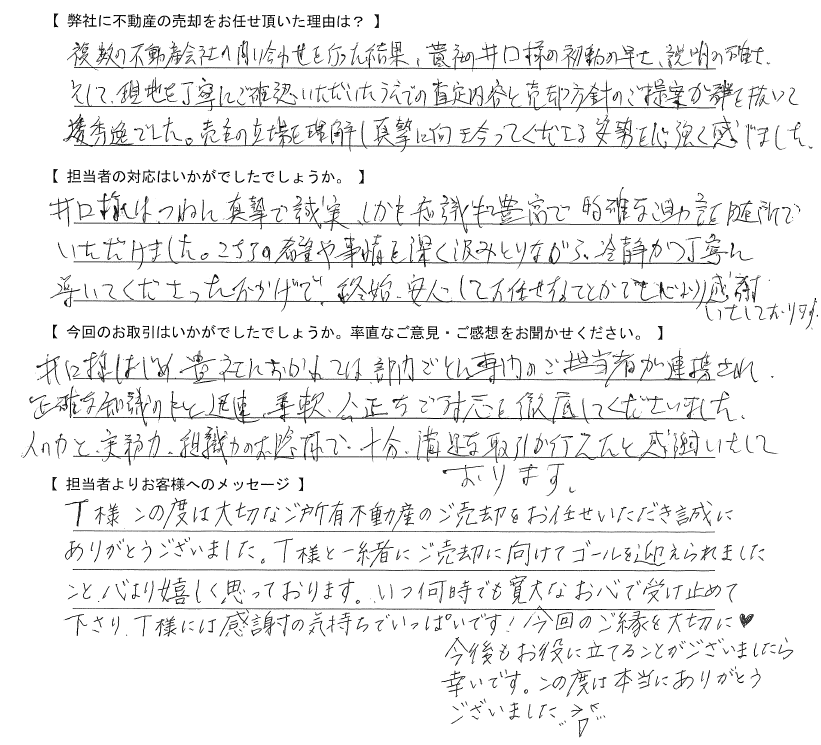 【 弊社に不動産の売却をお任せ頂いた理由は？ 】
複数の不動産会社へ問い合わせを行った結果、貴社の井口様の初動の早さ、説明の確さ、
そして、現地を丁寧にご確認いただいたうえでの査定内容と売却方針のご提案が群を抜いて
優秀逸でした。売主の立場を理解し真摯に向き合ってくださる姿勢を心強く感じました。
【 担当者の対応はいかがでしたでしょうか。 】
井口様はつねに真摯で誠実、しかも知識も豊富で的確な助言を随所で
いただけました。こちらの希望や事情を深く汲みとりながら、冷静かつ丁寧に
導いてくださったおかげで、終始、安心してお任せすることができ心より感謝
いたしております。
【 今回のお取引はいかがでしたでしょうか。率直なご意見・ご感想をお聞かせください。 】
井口様はじめ、貴社におかれては、部門ごとに専門のご担当者が連携され、
正確な知識のもと迅速、柔軟、公正なご対応を徹底してくださいました。
人の力と、実務力、組織力のお陰様で、十分、満足な取引が行えたと感謝いたして
おります。
【 担当者よりお客様へのメッセージ 】
T様 この度は大切なご所有不動産のご売却をお任せいただき誠に
ありがとうございました。T様と一緒にご売却に向けてゴールを迎えられました
こと、心より嬉しく思っております。いつ何時でも寛大なお心で受け止めて
下さり、T様には感謝の気持ちでいっぱいです！今回のご縁を大切に♥
今後もお役に立てることがございましたら
幸いです。この度は本当にありがとう
ございました